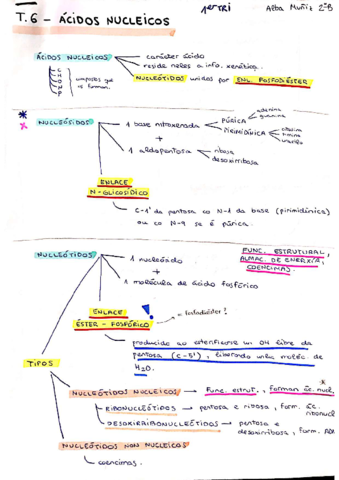 1er TRI
Alba Muñiz 2ºB
T.6 - ÁCIDOS NUCLEICOS
ÁCIDOS NUCLEICOS
carácter ácido
reside neles a info. xenética.
NUCLEÓTIDOS unidos por ENL. FOSFODIÉSTER
C
H
O
N
P
compostos que os forman.
NUCLEÓSIDOS
1 base nitroxenada
PÚRICA
adenina
guanina
PIRIMIDÍNICA
citosina
timina
uracilo
+
1 aldopentosa
ribosa
desoxirribosa
ENLACE
N-GLICOSÍDICO
C-1' da pentosa co N-1 da base (pirimidínica)
ou co N-9 se é púrica.
NUCLEÓTIDOS
1 nucleósido
+
1 molécula de ácido fosfórico
FUNC. ESTRUTURAL,
ALMAC. DE ENERXÍA,
COENCIMAS.
ENLACE
ÉSTER-FOSFÓRICO
!
= fosfodiéster!
producido ao esterificarse un OH libre da
pentosa (C-5'), liberando unha moléc. de
H2O.
TIPOS
NUCLEÓTIDOS NUCLEICOS → Func. estrut., forman ác. nucl.
RIBONUCLEÓTIDOS → pentosa é ribosa, form. ác.
ribonucl
DESOXIRRIBONUCLEÓTIDOS → pentosa é
desoxirribosa, form. ADN
NUCLEÓTIDOS NON NUCLEICOS
coencimas.